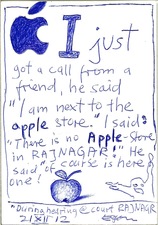 I just
got a call from a
friend, he said
"I am next to the
apple store." I said:
"There is no Apple-Store
in RAJNAGAR!" He
said "of course is here
one!
"During hearing @ court RAJNAGR
21XII12